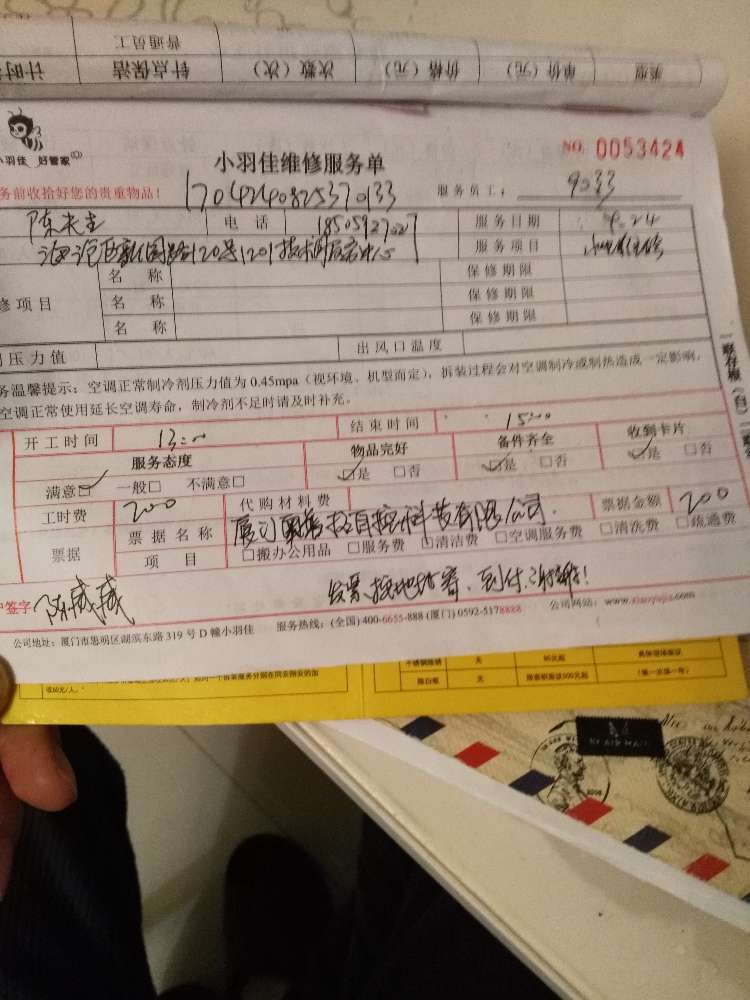 计时 针点保洁 次数（次） 价格（元） 单价（元） 类型
普通员工
小羽佳 好管家
小羽佳维修服务单
NO. 0053424
务前收拾好您的贵重物品！
17042408253370133
服务员工： 9033
陈先生 电话 服务日期 9.24
服务项目
修项目 名称 保修期限
名称 保修期限
名称 保修期限
压力值 出风口温度
务温馨提示：空调正常制冷剂压力值为 0.45mpa（视环境、机型而定），拆装过程会对空调制冷或制热造成一定影响，
空调正常使用延长空调寿命，制冷剂不足时请及时补充。
开工时间 13:00 结束时间 15:00
服务态度 物品完好 备件齐全 收到卡片
满意☑ 一般□ 不满意□ ☑是 □否 ☑是 □否 ☑是 □否
工时费 200 代购材料费
票据 票据名称 票据金额 200
项目 □搬办公用品 □服务费 □清洁费 □空调服务费 □清洗费 □疏通费
户签字 陈威威
公司地址：厦门市思明区湖滨东路 319 号 D 幢小羽佳 服务热线：(全国) 400-6655-888 (厦门) 0592-5178888 公司网站：www.xiaoyujia.com
一联存根（白）
收60元/人。